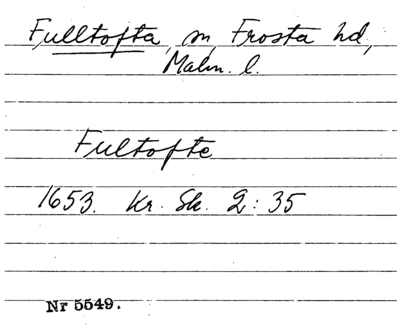 Fulltofta, sn, Frosta hd,
Malm. l.
Fultofte
1653. Kr. Sk. 2:35
Nr 5549.